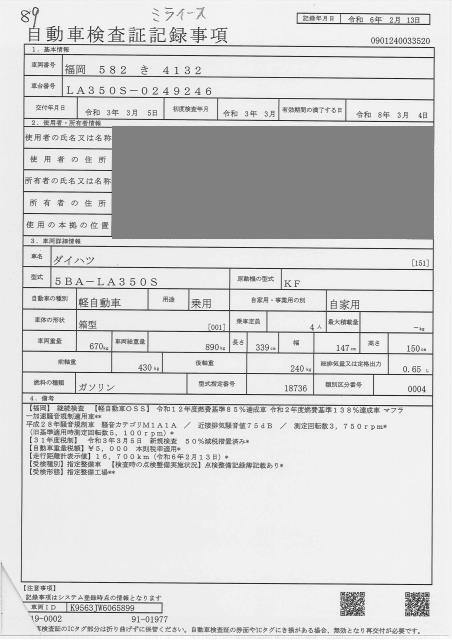 89
ミライース
記録年月日 令和 6年 2月 13日
自動車検査証記録事項
0901240033520
1. 基本情報
車両番号 福岡 582 き 4132
車台番号 LA350S-0249246
交付年月日 令和 3年 3月 5日 初度検査年月 令和 3年 3月 有効期間の満了する日 令和 8年 3月 4日
2. 使用者・所有者情報
使用者の氏名又は名称
使用者の住所
所有者の氏名又は名称
所有者の住所
使用の本拠の位置
3. 車両詳細情報
車名 ダイハツ [151]
型式 5BA-LA350S 原動機の型式 KF
自動車の種別 軽自動車 用途 乗用 自家用・事業用の別 自家用
車体の形状 箱型 [001] 乗車定員 4人 最大積載量 -kg
車両重量 670kg 車両総重量 890kg 長さ 339cm 幅 147cm 高さ 150cm
前軸重 430kg 後軸重 240kg 総排気量又は定格出力 0.65 L
燃料の種類 ガソリン 型式指定番号 18736 類別区分番号 0004
4. 備考
【福岡】 継続検査 【軽自動車OSS】 令和12年度燃費基準85%達成車 令和2年度燃費基準138%達成車 マフラ
ー加速騒音規制適用車**
平成28年騒音規制車 騒音カテゴリM1A1A / 近接排気騒音値75dB / 測定回転数3,750rpm)*
(旧基準適用時測定回転数5,100rpm)*
【31年度税制】 令和3年3月5日 新規検査 50%減税措置済み*
【自動車重量税額】¥5,000 本則税率適用*
【走行距離計表示値】16,700km(令和6年2月13日)*
【受検種別】指定整備車 【検査時の点検整備実施状況】点検整備記録簿記載あり*
【受検形態】指定整備工場**
【注意事項】
記録事項はシステム登録時点の情報となります
車両ID K9563JW6065899
19-0002 91-01977
車検査証のICタグ部分は折り曲げずに保管ください。自動車検査証の券面やICタグにき損がある場合、無効となり再交付が必要です。